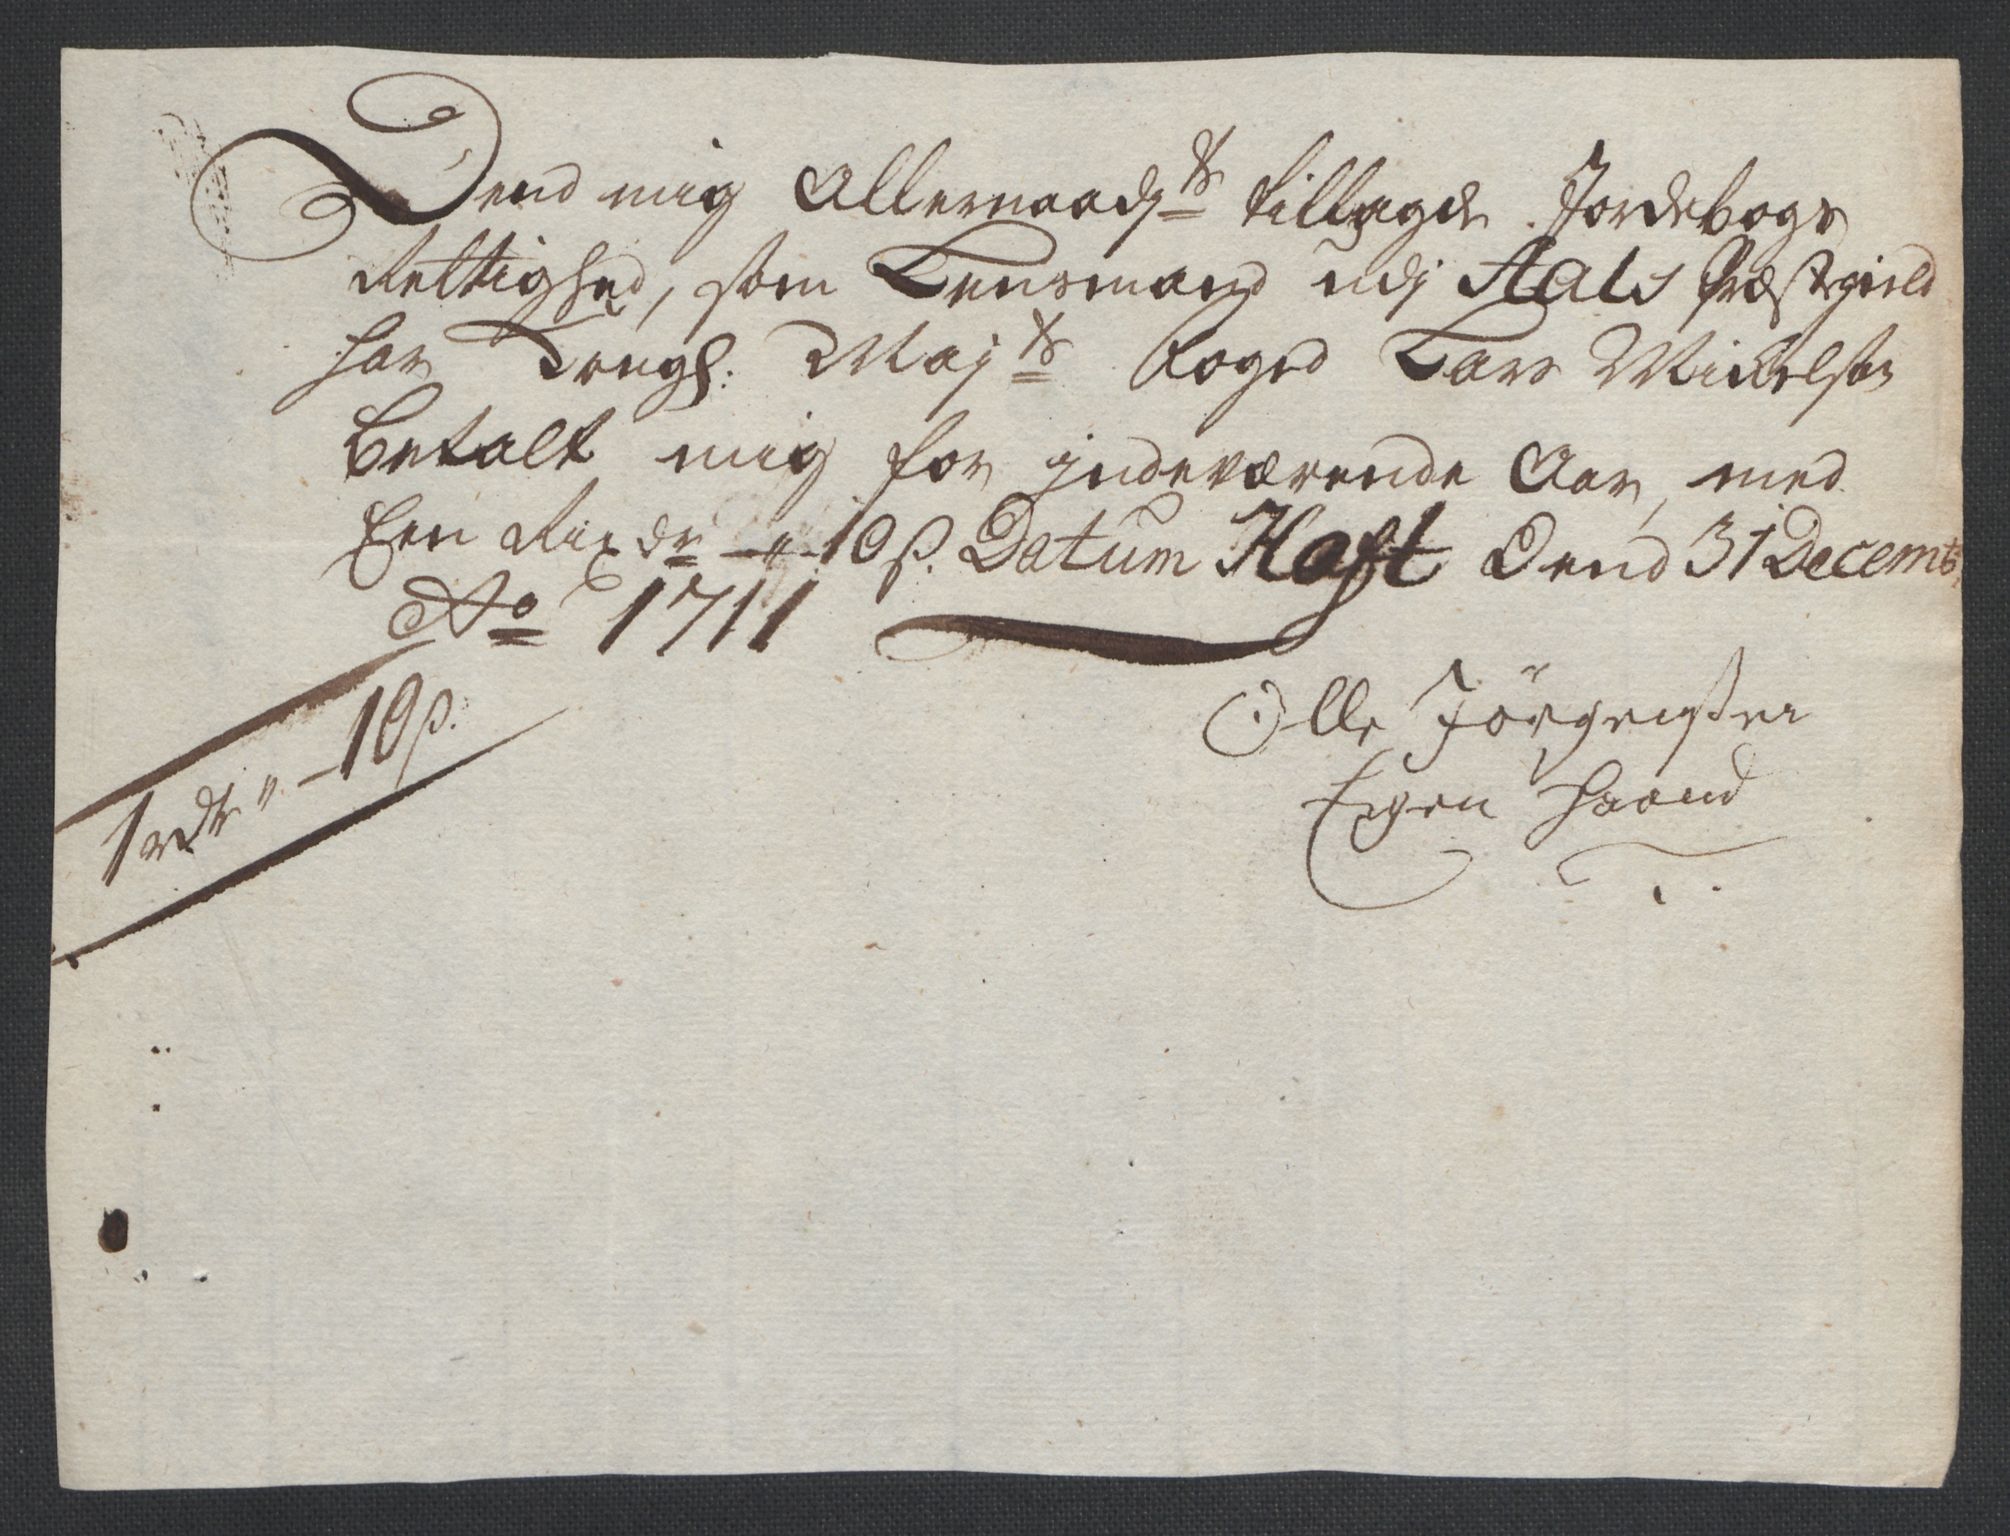 Dend mig Allernaadgst tillagde Jordebogs
Rettighed, som Lensmand udj Aals Præstegield
har Kongl: Mayts Foged Lars Mickelsen
betalt mig for jndeværende Aar, med
Een Rixdr — " — 10 ß. Datum Hoft Dend 31 Decemb:
Ao 1711
1 rdr " — 10 ß.
Olle Jörgensen
Egen Haand